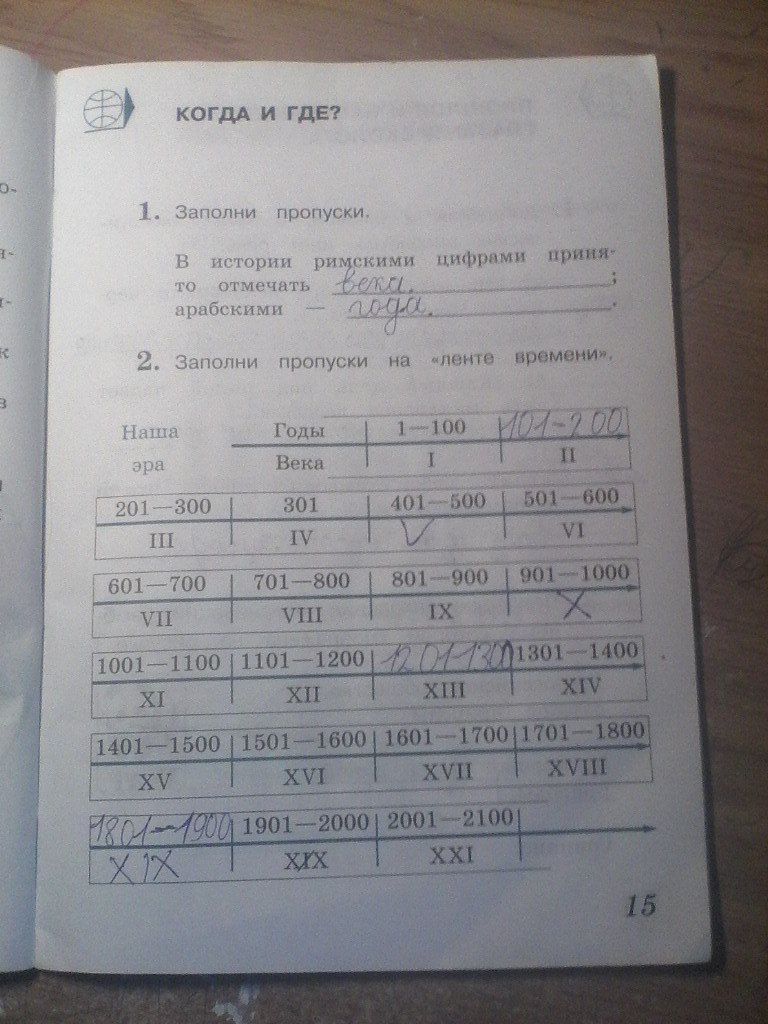 КОГДА И ГДЕ?
1. Заполни пропуски.
В истории римскими цифрами приня-
то отмечать века. ;
арабскими — года. .
2. Заполни пропуски на «ленте времени».
Наша Годы 1—100 101-200
эра Века I II
201—300 301 401—500 501—600
III IV V VI
601—700 701—800 801—900 901—1000
VII VIII IX X
1001—1100 1101—1200 1201-1300 1301—1400
XI XII XIII XIV
1401—1500 1501—1600 1601—1700 1701—1800
XV XVI XVII XVIII
1801—1900 1901—2000 2001—2100
XIX XIX XXI
15